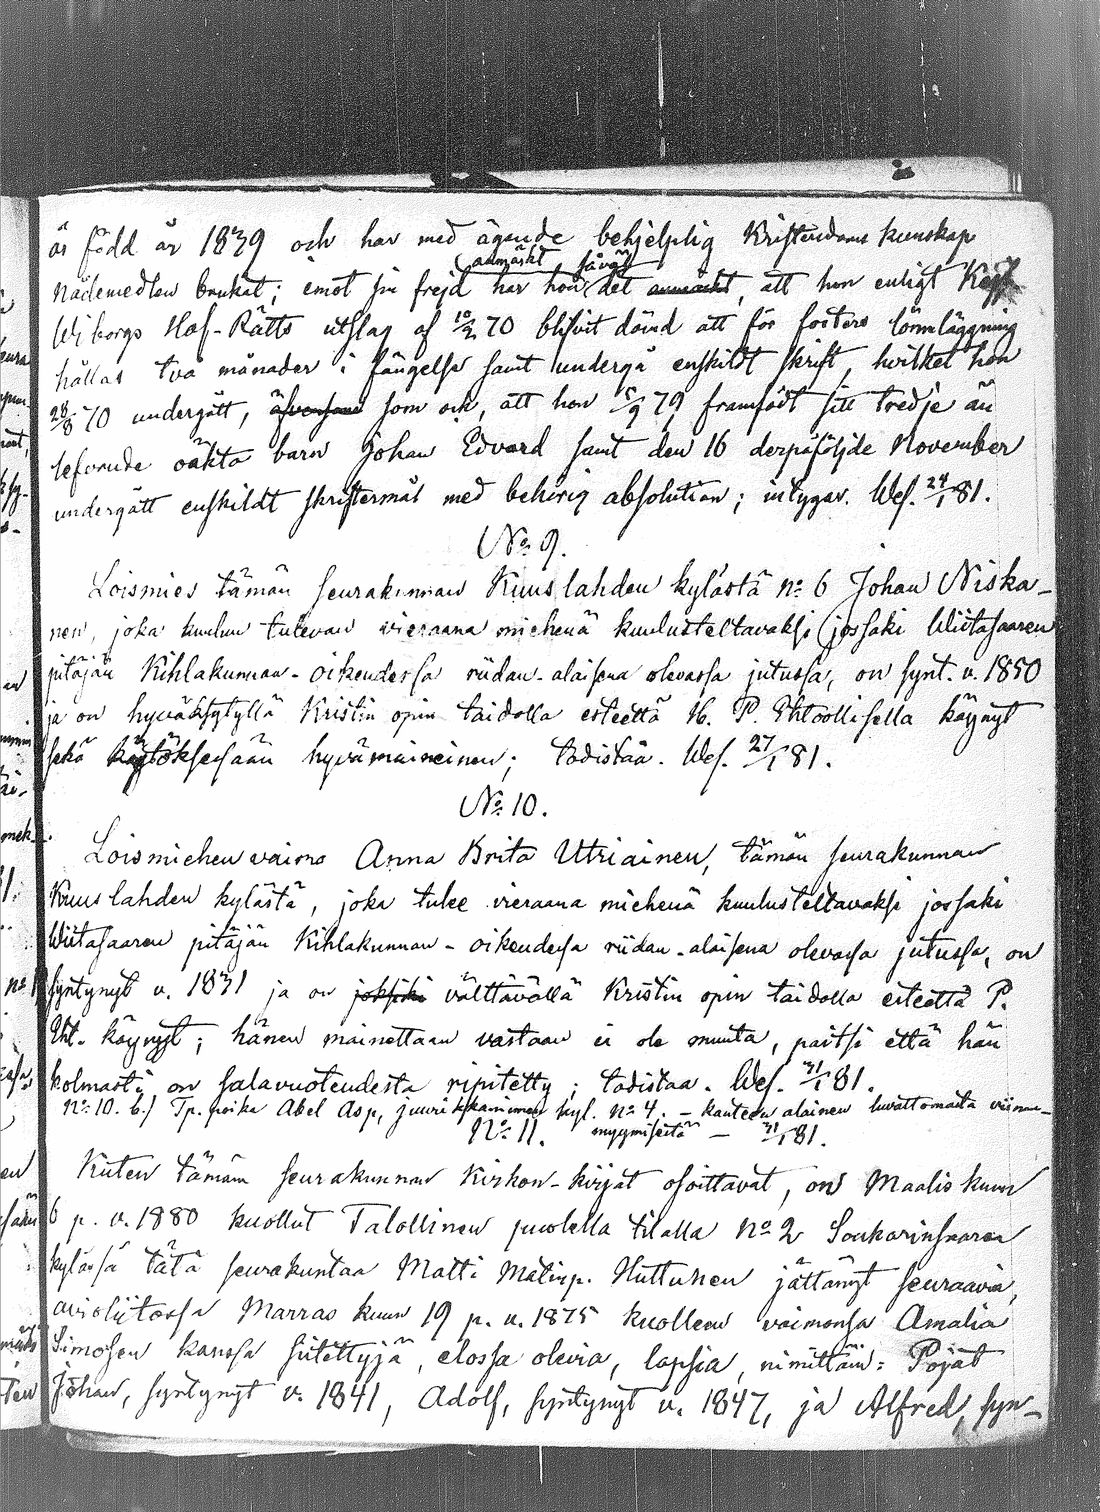 är född år 1839 och har med ägande behjelplig Kristendoms kunskap
anmärkt, såväl
nådemedlen brukat; emot sin frejd har hon det anmärkt, att hon enligt Kejs.
Wiborgs Hof-Rätts utslag af 10/2 70 blifvit dömd att för fosters lönnläggning
hållas två månader i fängelse samt undergå enskildt skrift, hvilket hon
28/8 70 undergått, äfvensom som ock, att hon 5/9 79 framfödt sitt tredje än
lefvande oäkta barn Johan Edvard samt den 16 derpåföljde November
undergått enskildt skriftermål med behörig absolution; intygar. Wes. 24/1 81.
No 9.
Loismies tämän seurakunnan Kuuslahden kylästä no 6 Johan Niska-
nen, joka kuuluu tulevan vieraana miehenä kuulusteltavaksi (jossaki Wiitasaaren
pitäjän Kihlakunnan-oikeudessa riidan-alaisena olevassa jutussa, on synt. v. 1850
ja on hyväksytyllä Kristin opin taidolla esteettä H. P. Ehtoollisella käynyt
sekä käytöksessään hyvämaineinen; todistaa. Wes. 27/1 81.
No 10.
Loismiehen vaimo Anna Brita Utriainen, tämän seurakunnan
Kuuslahden kylästä, joka tulee vieraana miehenä kuulusteltavaksi jossaki
Wiitasaaren pitäjän Kihlakunnan-oikeudessa riidan-alaisena olevassa jutussa, on
syntynyt v. 1831 ja on joksiki välttävällä Kristin opin taidolla esteettä P.
Eht. käynyt; hänen mainettaan vastaan ei ole muuta, paitsi että hän
kolmasti on salavuoteudesta ripitetty; todistaa. Wes. 31/1 81.
No 10. b.) Tp. poika Abel Asp, kyl. no 4. - kanteen alainen luvattomasta viinan-
No 11. myymisestä - 31/1 81.
Kuten tämän seurakunnan Kirkon-kirjat osoittavat, on Maalis kuun
6 p. v. 1880 kuollut Talollinen puolella tilalla No 2 Soukarinsaaren
kylässä tätä seurakuntaa Matti Matinp. Huttunen jättänyt seuraavia,
avioliitossa Marras kuun 19 p. v. 1875 kuolleen vaimonsa Amalia
Simosen kanssa siitettyjä, elossa olevia, lapsia, nimittäin: Pojat
Johan, syntynyt v. 1841, Adolf, syntynyt v. 1847, ja Alfred, syn-